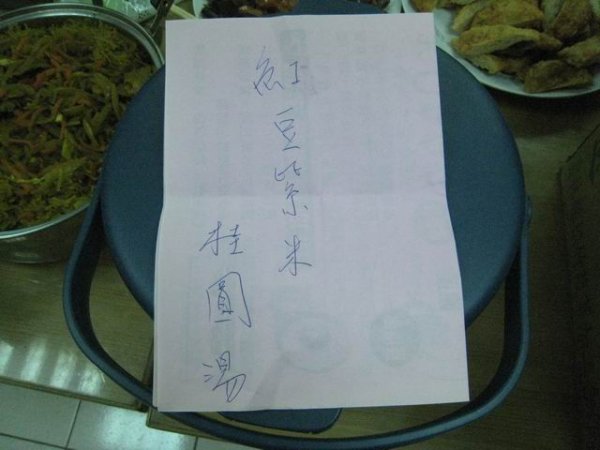 紅豆紫米
桂圓湯